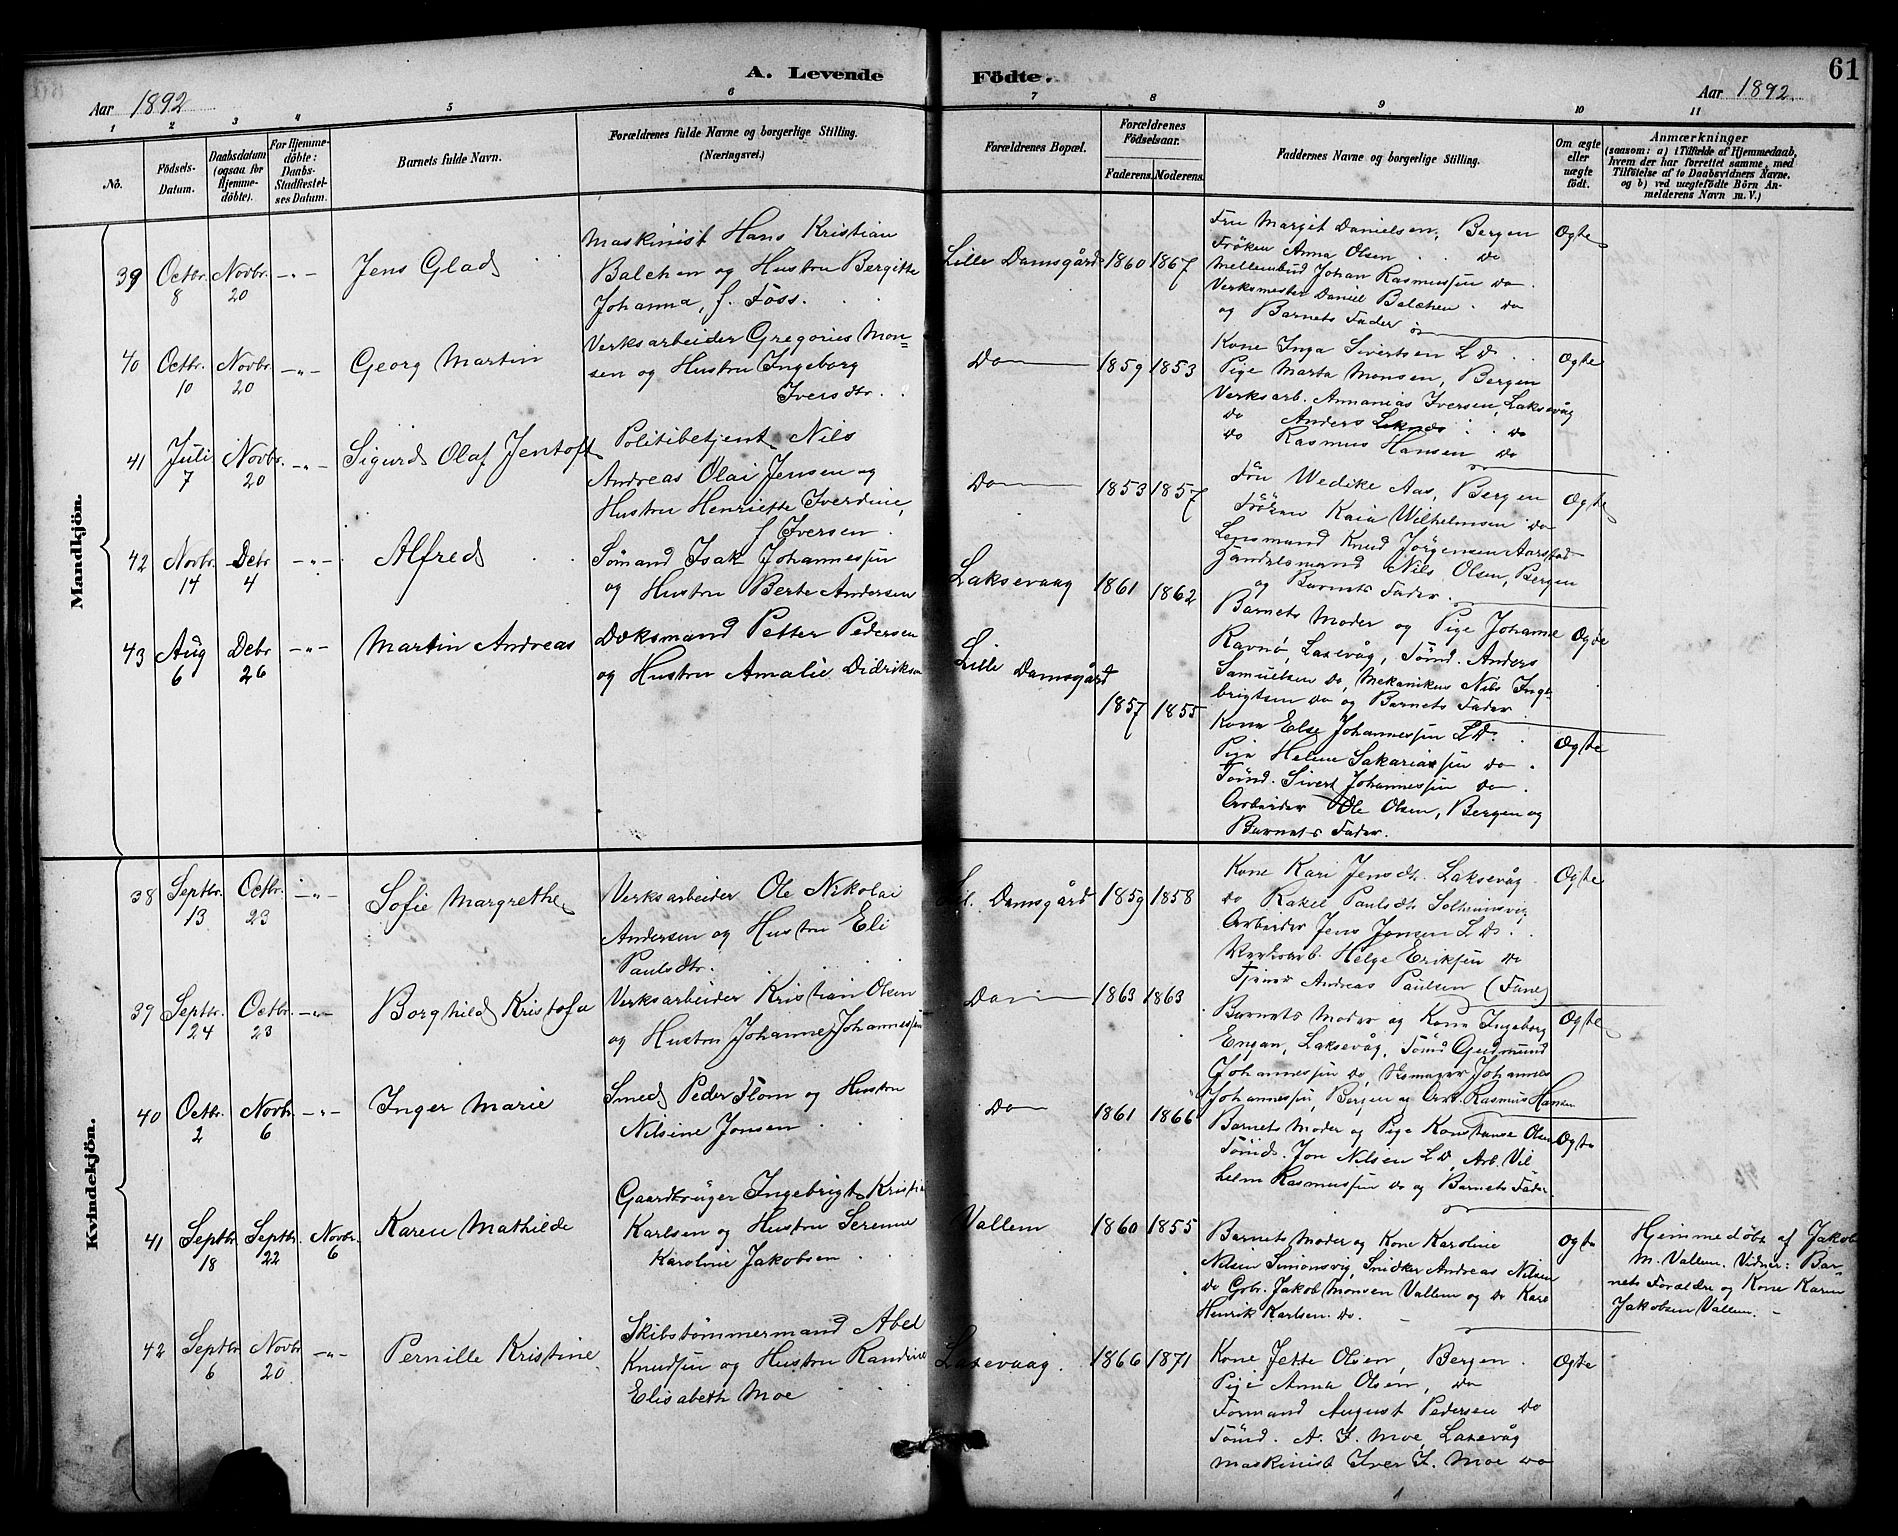 A. Levende Födte.
61
Aar 1892
Aar 1892
1 2 3 4 5 6 7 8 9 10 11
No.
Födsels-Datum.
Daabsdatum (ogsaa for Hjemmedöbte).
For Hjemmedöbte: Daabs-Stadfæstelses Datum.
Barnets fulde Navn.
Forældrenes fulde Navne og borgerlige Stilling. (Næringsvei.)
Forældrenes Bopæl.
Forældrenes Födselsaar.
Faderens. Moderens.
Faddernes Navne og borgerlige Stilling.
Om ægte eller uægte födt.
Anmærkninger
(saasom: a) i Tilfælde af Hjemmedaab, hvem der har forrettet samme, med Tilföielse af to Daabsvidners Navne. og b) ved uægtefödte Börn Anmelderens Navn m. V.)
Mandkjön.
39 Octbr. 8 Novbr. 20 -"- Jens Glad
Maskinist Hans Kristian
Balchen og Hustru Bergitte
Johanna, f. Foss.
Lille Damsgård 1860 1867
Fru Margit Danielsen, Bergen
Fröken Anna Olsen do
Mellembud Johan Rasmussen do.
Verksmester Daniel Balchen do
og Barnets Fader
Ogte
40 Octbr. 10 Novbr. 20 -"- Georg Martin
Verksarbeider Gregorius Mon=
sen og Hustru Ingeborg
Iversdtr.
Do 1859 1853
Kone Inga Sivertsen L D.
Pige Marta Monsen, Bergen
Verksarb. Annanias Iversen, Laksevåg
do Anders do
do Rasmus Hansen do
Ogte
41 Juli 7 Novbr. 20 -"- Sigurd Olaf Jentoft
Politibetjent Nils
Andreas Olai Jensen og
Hustru Henriette Iverdine,
f Iversen.
Do 1853 1857
Fru Wedike Aas, Bergen
Fröken Kaia Wilhelmsen do
Lensmand Knud Jörgensen Aarstad
Handelsmand Nils Olsen, Bergen
og Barnets Fader.
Ogte
42 Novbr. 14 Debr 4 -"- Alfred
Sömand Isak Johannessen
og Hustru Berte Andersen
Laksevaag 1861 1862
Barnets Moder og Pige Johanne
Ravnö, Laxevåg, Sömd. Anders
Samuelsen do, Mekanikus Nils Inge
brigtsen do og Barnets Fader
Ogte
43 Aug 6 Debr 26 -"- Martin Andreas
Dæksmand Petter Pedersen
og Hustru Amalie Didriksen
Lille Damsgård 1857 1855
Kone Else Johannessen L D.
Pige Helene Sakariassen do.
Sömd. Sivert Johannessen do.
Arbeider Ole Olsen, Bergen og
Barnets Fader.
Ogte
Kvindekjön.
38 Septbr. 13 Octbr. 23 -"- Sofie Margrethe
Verksarbeider Ole Nikolai
Andersen og Hustru Eli
Paulsdtr.
Lil. Damsgård 1859 1858
Kone Kari Jensdtr. Laksevåg
do Rakel Paulsdtr Solheimsvig
Arbeider Jens Jonsen L D.
Verksarb. Helge Eriksen do
Tjener Andreas Paulsen (Fane)
Ogte
39 Septbr. 24 Octbr. 23 -"- Borghild Kristofa
Verksarbeider Kristian Olsen
og Hustru Johanne Johannessen
Do 1863 1863
Barnets Moder og Kone Ingeborg
Engan, Laksevåg, Sömd Gudmund
Johannessen do, Johannes
Johannessen, Bergen og Arb. Rasmus Hansen
Ogte
40 Octbr. 2 Novbr 6 -"- Inger Marie
Smed Peder Flom og Hustru
Nilsine Jonsen
Do 1861 1866
Barnets Moder og Pige Konstanse Olsen
Sömd. Jon Nilsen L D, Arb. Vil
helm Rasmussen do og Barnets Fader
Ogte
41 Septbr 18 Septbr. 22 Novbr. 6 Karen Mathilde
Gaardbruger Ingebrigt Kristian
Karlsen og Hustru Serenne
Karoline Jakobsen
Vallem 1860 1855
Barnets Moder og Kone Karoline
Nilsen Simonsvig, Snidker Andreas Nilsen
do Gbr. Jakob Monsen Vallem og do Karl
Henrik Karlsen do.
Ogte
Hjemmedöbt af Jakob
M. Vallem. Vidner: Bar-
nets Forældre og Kone Karen
Jakobsen Vallem. -
42 Septbr 6 Novbr 20 -"- Pernille Kristine
Skibstömmermand Abel
Knudsen og Hustru Randine
Elisabeth Moe
Laxevaag. 1866 1871
Kone Jette Olsen, Bergen
Pige Anna Olsen, do
Formand August Pedersen do
Sömd. A. I. Moe, Laxevåg
Maskinist Iver I. Moe do
Ogte